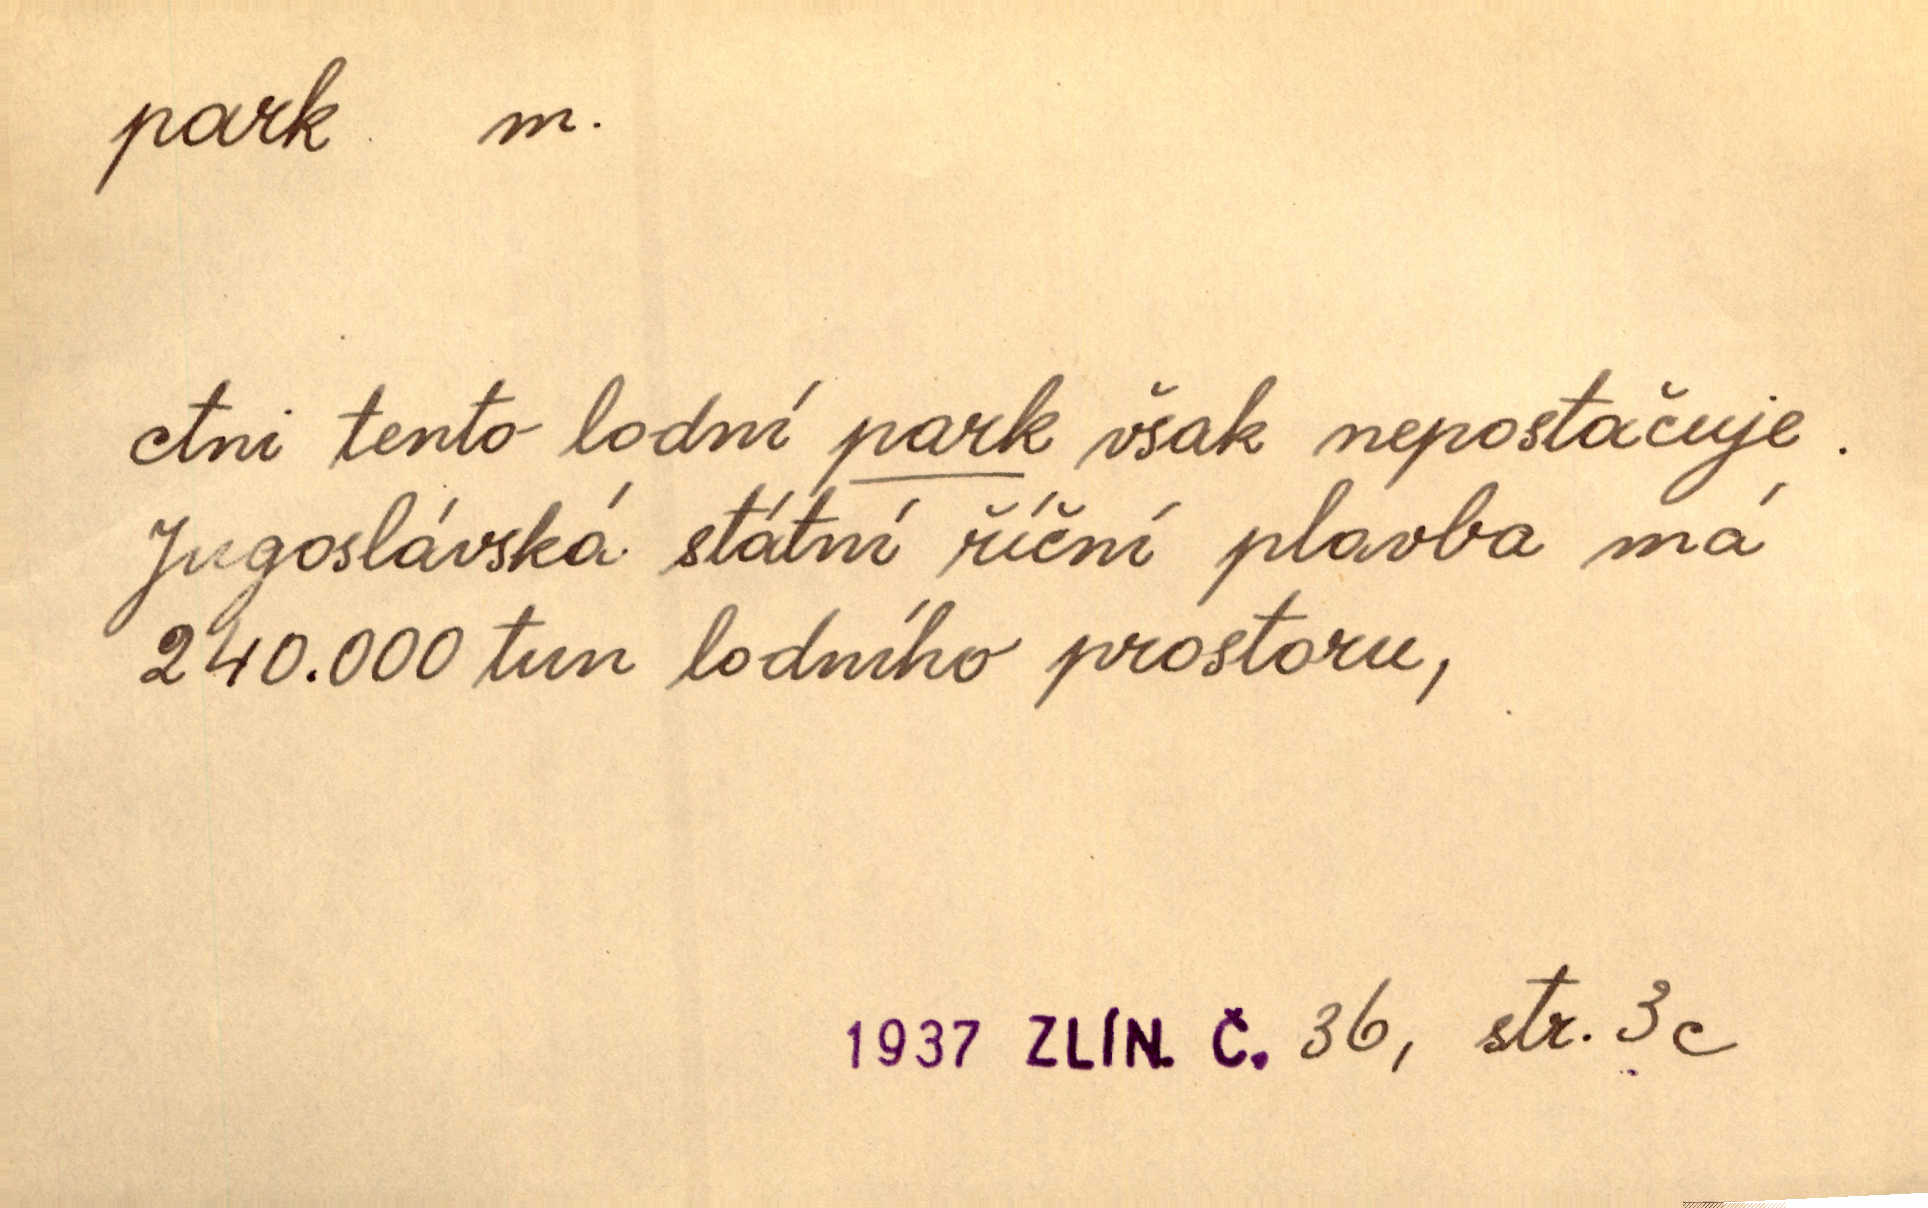 park m.
Ani tento lodní park však nepostačuje.
Jugoslávská státní říční plavba má
240.000 tun lodního prostoru,
1937 ZLÍN. Č. 36, str. 3c